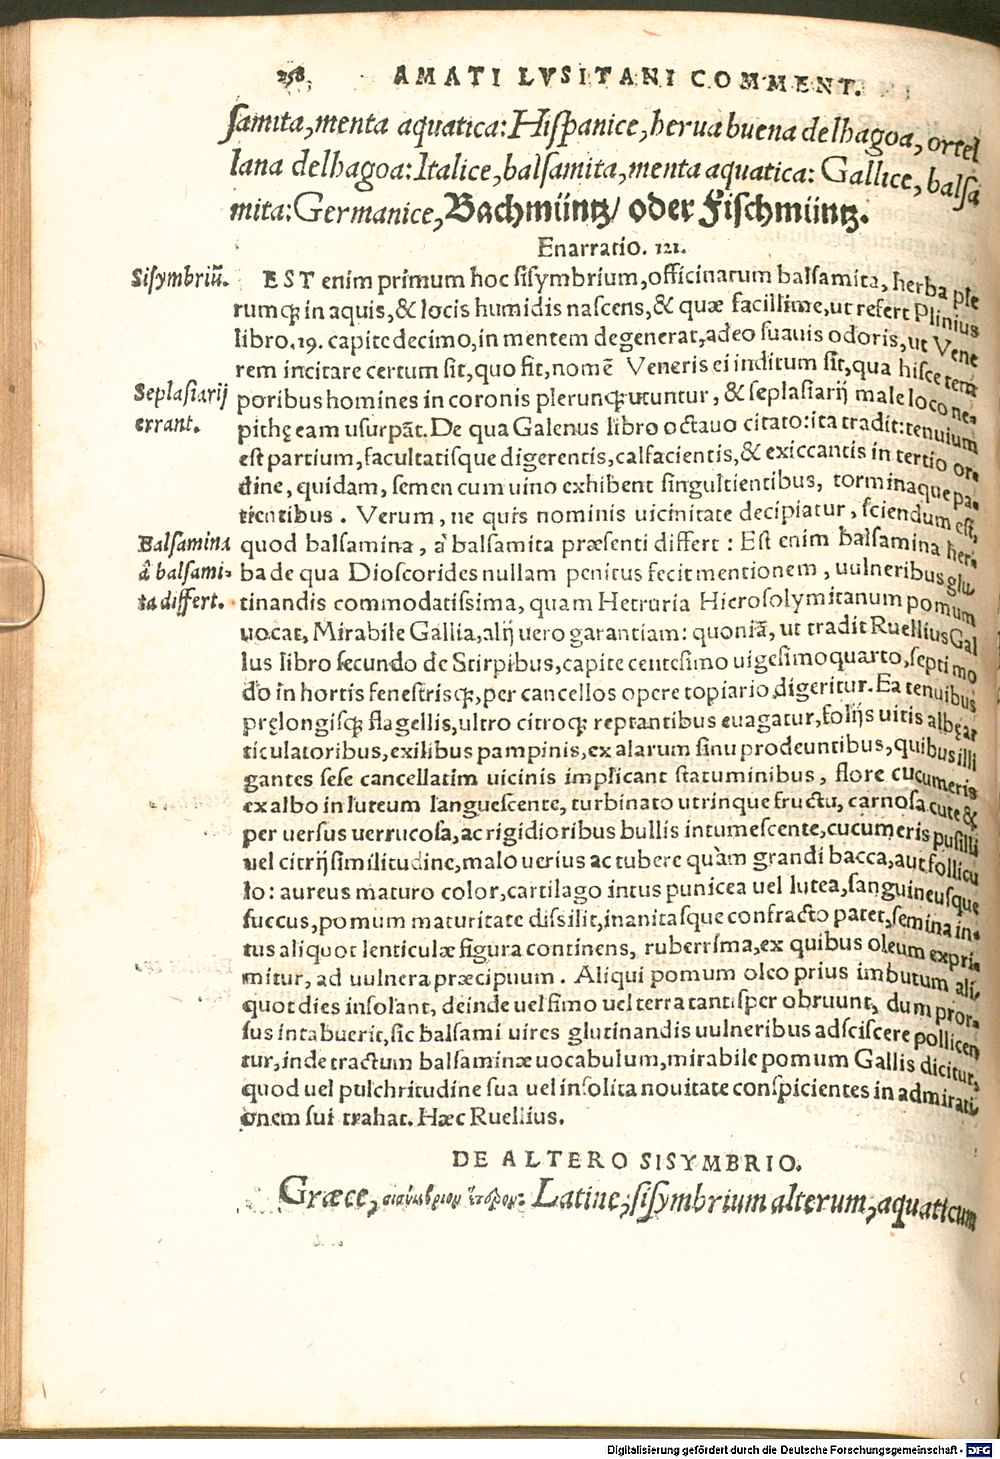 258 AMATI LVSITANI COMMENT.
samita, menta aquatica: Hispanice, herua buena delhagoa, ortel
lana delhagoa: Italice, balsamita, menta aquatica: Gallice, balsa
mita: Germanice, Bachmüntz/ oder Fischmüntz.
Enarratio. 121.
Sisymbriū.
EST enim primum hoc sisymbrium, officinarum balsamita, herba ple
rumq; in aquis, & locis humidis nascens, & quæ facillime, ut refert Plinius
libro.19. capite decimo, in mentem degenerat, adeo suauis odoris, ut Vene
rem incitare certum sit, quo fit, nomē Veneris ei inditum sit, qua hisce tem
Seplasiarij
errant.
poribus homines in coronis plerunq; utuntur, & seplasiarij male loco ne-
pithę eam usurpāt. De qua Galenus libro octauo citato: ita tradit: tenuium
est partium, facultatisque digerentis, calfacientis, & exiccantis in tertio or-
dine, quidam, semen cum uino exhibent singultientibus, torminaque pa-
tientibus. Verum, ne quis nominis uicinitate decipiatur, sciendum est,
Balsamina
à balsami-
ta differt.
quod balsamina, à balsamita præsenti differt: Est enim balsamina her-
ba de qua Dioscorides nullam penitus fecit mentionem, uulneribus glu-
tinandis commodatissima, quam Hetruria Hierosolymitanum pomum
uocat, Mirabile Gallia, alij uero garantiam: quoniā, ut tradit Ruellius Gal
lus libro secundo de Stirpibus, capite centesimo uigesimoquarto, septimo
do in hortis fenestrisq;, per cancellos opere topiario digeritur. Ea tenuibus
pręlongisq; flagellis, ultro citroq; reptantibus euagatur, folijs uitis albę ar
ticulatoribus, exilibus pampinis, ex alarum sinu prodeuntibus, quibus illi
gantes sese cancellatim uicinis implicant statuminibus, flore cucumeris
ex albo in luteum languescente, turbinato utrinque fructu, carnosa cute &
per uersus uerrucosa, ac rigidioribus bullis intumescente, cucumeris pusilli
uel citrij similitudine, malo uerius ac tubere quàm grandi bacca, aut follicu
lo: aureus maturo color, cartilago intus punicea uel lutea, sanguineusque
succus, pomum maturitate dissilit, inanitasque confracto patet, semina in-
tus aliquot lenticulæ figura continens, ruberrima, ex quibus oleum expri-
mitur, ad uulnera præcipuum. Aliqui pomum oleo prius imbutum ali-
quot dies insolant, deinde uel fimo uel terra tantisper obruunt, dum pror-
sus intabuerit, sic balsami uires glutinandis uulneribus adsciscere pollicen
tur, inde tractum balsaminæ uocabulum, mirabile pomum Gallis dicitur,
quod uel pulchritudine sua uel insolita nouitate conspicientes in admirati-
onem sui trahat. Hæc Ruellius.
DE ALTERO SISYMBRIO.
Græce, σισύμβριον ἕτερον: Latine, sisymbrium alterum, aquaticum
Digitalisierung gefördert durch die Deutsche Forschungsgemeinschaft - DFG